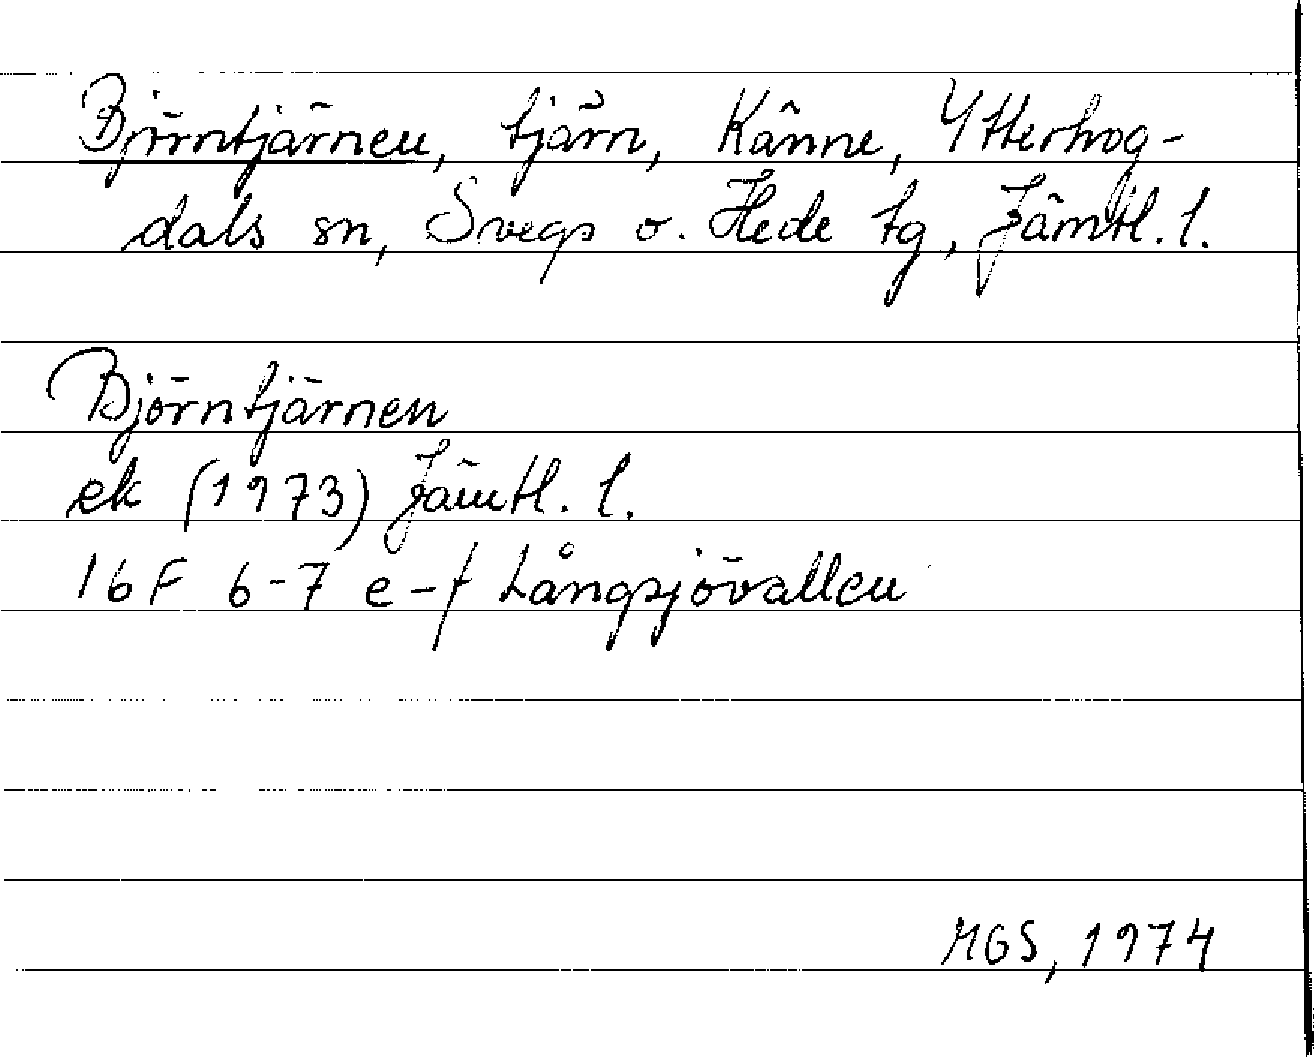 Björntjärnen, tjärn, Känne, Ytterhog-
dals sn, Svegs o. Hede tg, Jämtl. l.
Björntjärnen
ek (1973) Jämtl. l.
16F 6-7 e-f Långsjövallen
MGS, 1974